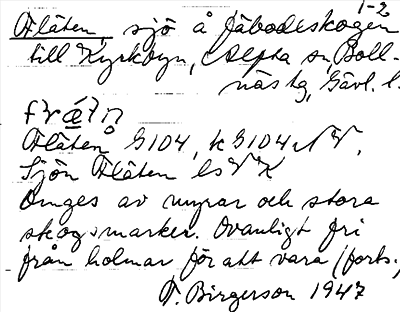 1-2
Flåten, sjö å Fäbodeskogen
till Kyrkbyn, Alfta sn, Boll-
näs tg, Gävl. l.
Flåten G104, k G104 NV,
Sjön Flåten ls VK
Omges av myrar och stora
skogsmarker. Ovanligt fri
från holmar för att vara (forts.)
T. Birgerson 1947